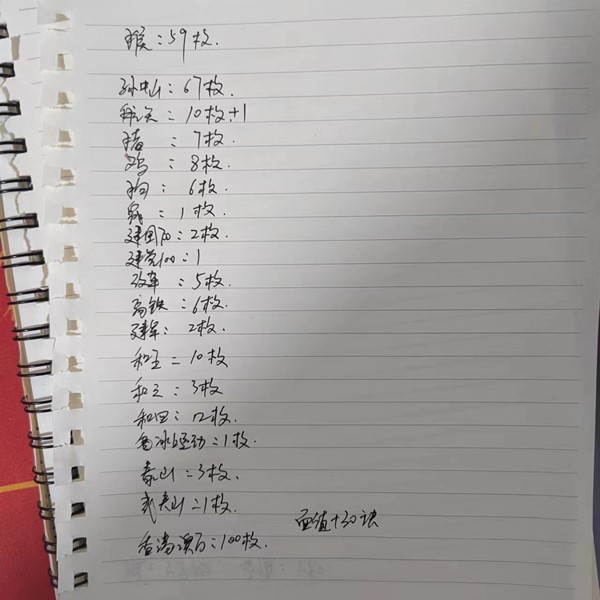 猴：59枚.
孙中山：67枚.
航天：10枚+1
猪：7枚.
鸡：8枚.
狗：6枚.
：1枚.
建国70：2枚.
建党100：1
改革：5枚.
高铁：6枚.
建军：2枚.
和三：10枚
和五：3枚
和四：12枚.
冰运动：1枚.
泰山：3枚.
武夷山：1枚.
面值+30块
香港澳门：100枚.